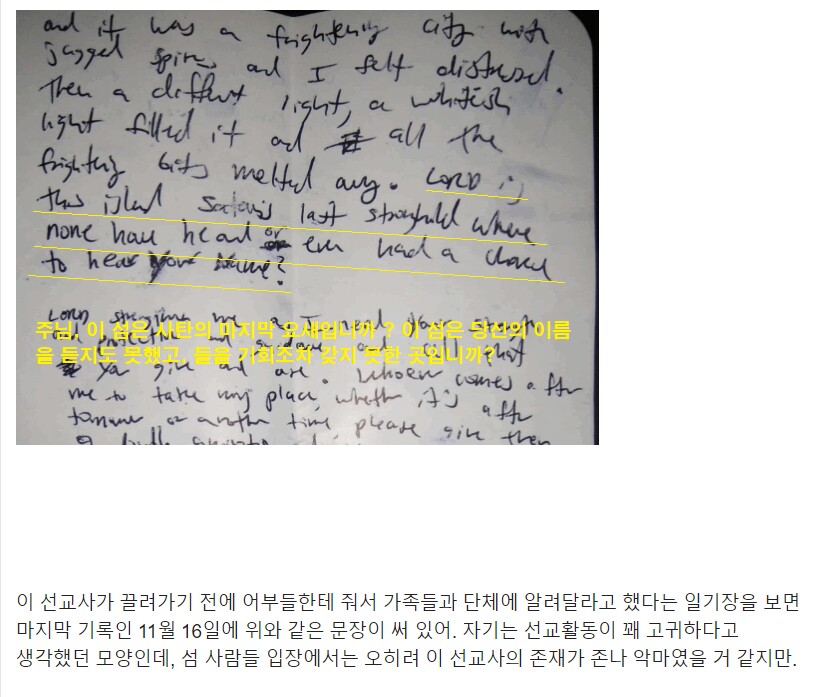 and it was a frightening city with
jagged spires and I felt distressed.
Then a different light, a whitish
light filled it and all the
frightening bits melted away. LORD is
this island Satan's last stronghold where
none have heard or even had a chance
to hear your Name?
LORD strengthen me as I need
주님, 이 섬은 사탄의 마지막 요새입니까? 이 섬은 당신의 이름
을 듣지도 못했고, 들을 기회조차 갖지 못한 곳입니까?
you give and are. Whoever comes after
me to take my place, whether it's after
tomorrow or another time, please give them
이 선교사가 끌려가기 전에 어부들한테 줘서 가족들과 단체에 알려달라고 했다는 일기장을 보면
마지막 기록인 11월 16일에 위와 같은 문장이 써 있어. 자기는 선교활동이 꽤 고귀하다고
생각했던 모양인데, 섬 사람들 입장에서는 오히려 이 선교사의 존재가 존나 악마였을 거 같지만.